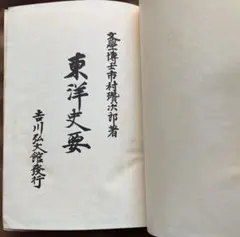 文學博士市村瓚次郎著
東洋史要
吉川弘文館發行